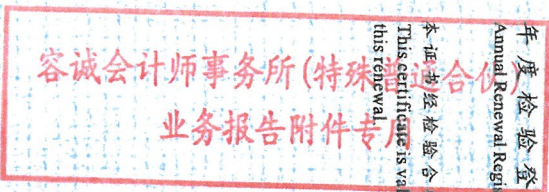 容诚会计师事务所(特殊普通合伙)
业务报告附件专用
年度检验登
Annual Renewal Regi
本证书经检验合
This certificate is val
this renewal.